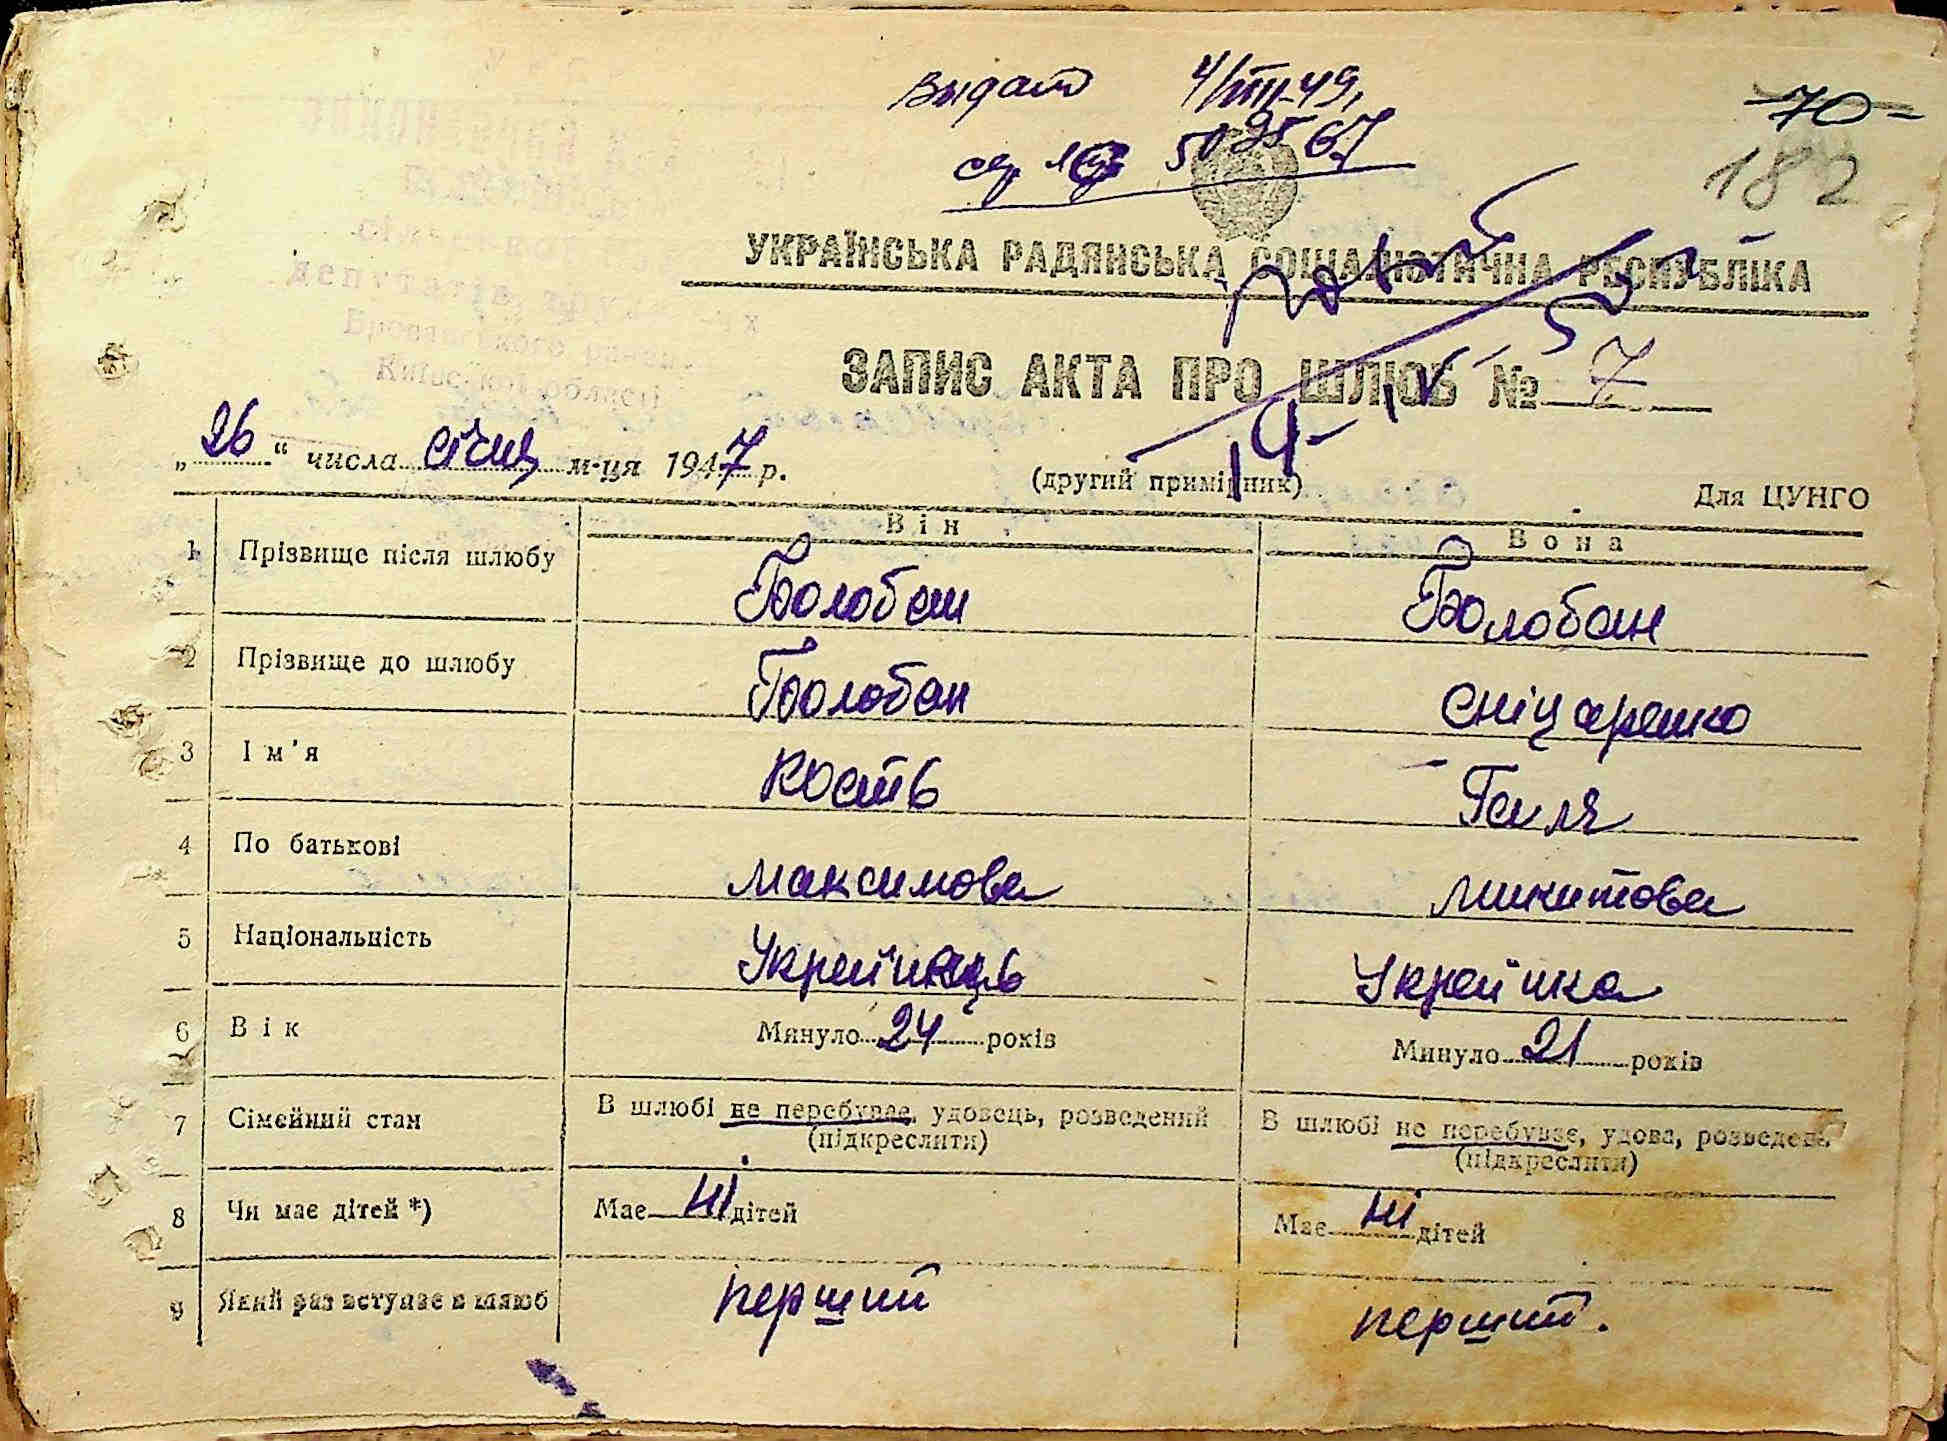 Выдано 4/III-49,
50 25 67
-70-
182
УКРАЇНСЬКА РАДЯНСЬКА СОЦІАЛІСТИЧНА РЕСПУБЛІКА
ЗАПИС АКТА ПРО ШЛЮБ № 7
депутатів
Броварського району
Київської області
„26" числа січня м-ця 1947 р.
(другий примірник)
Для ЦУНГО
Він
Вона
1 Прізвище після шлюбу Болобан Болобан
2 Прізвище до шлюбу Болобан Сніцаренко
3 Ім'я Кость Галя
4 По батькові Максимова Микитова
5 Національність Українець Українка
6 Вік Минуло 24 років Минуло 21 років
7 Сімейний стан В шлюбі не перебуває, удовець, розведений В шлюбі не перебуває, удова, розведена
(підкреслити) (підкреслити)
8 Чи має дітей *) Має ні дітей Має ні дітей
9 Який раз вступає в шлюб перший перший.